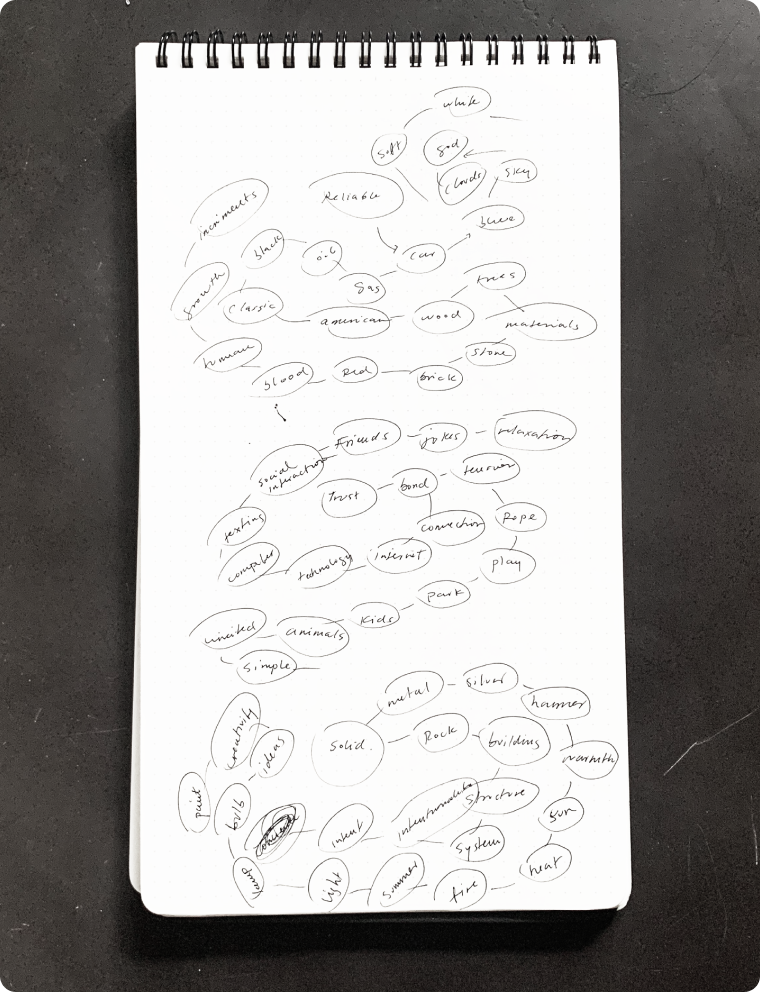 white
soft
god
clouds
sky
Reliable
incriments
blue
black
oil
car
gas
growth
trees
Classic
american
wood
materials
human
stone
blood
Red
brick
Friends
jokes
relaxation
social
interaction
Trust
bond
texting
connection
Rope
computer
technology
internet
play
park
united
animals
Kids
simple
metal
silver
hammer
creativity
ideas
Solid.
Rock
building
warmth
paint
bulb
intent
Structure
sun
system
lamp
light
summer
fire
heat